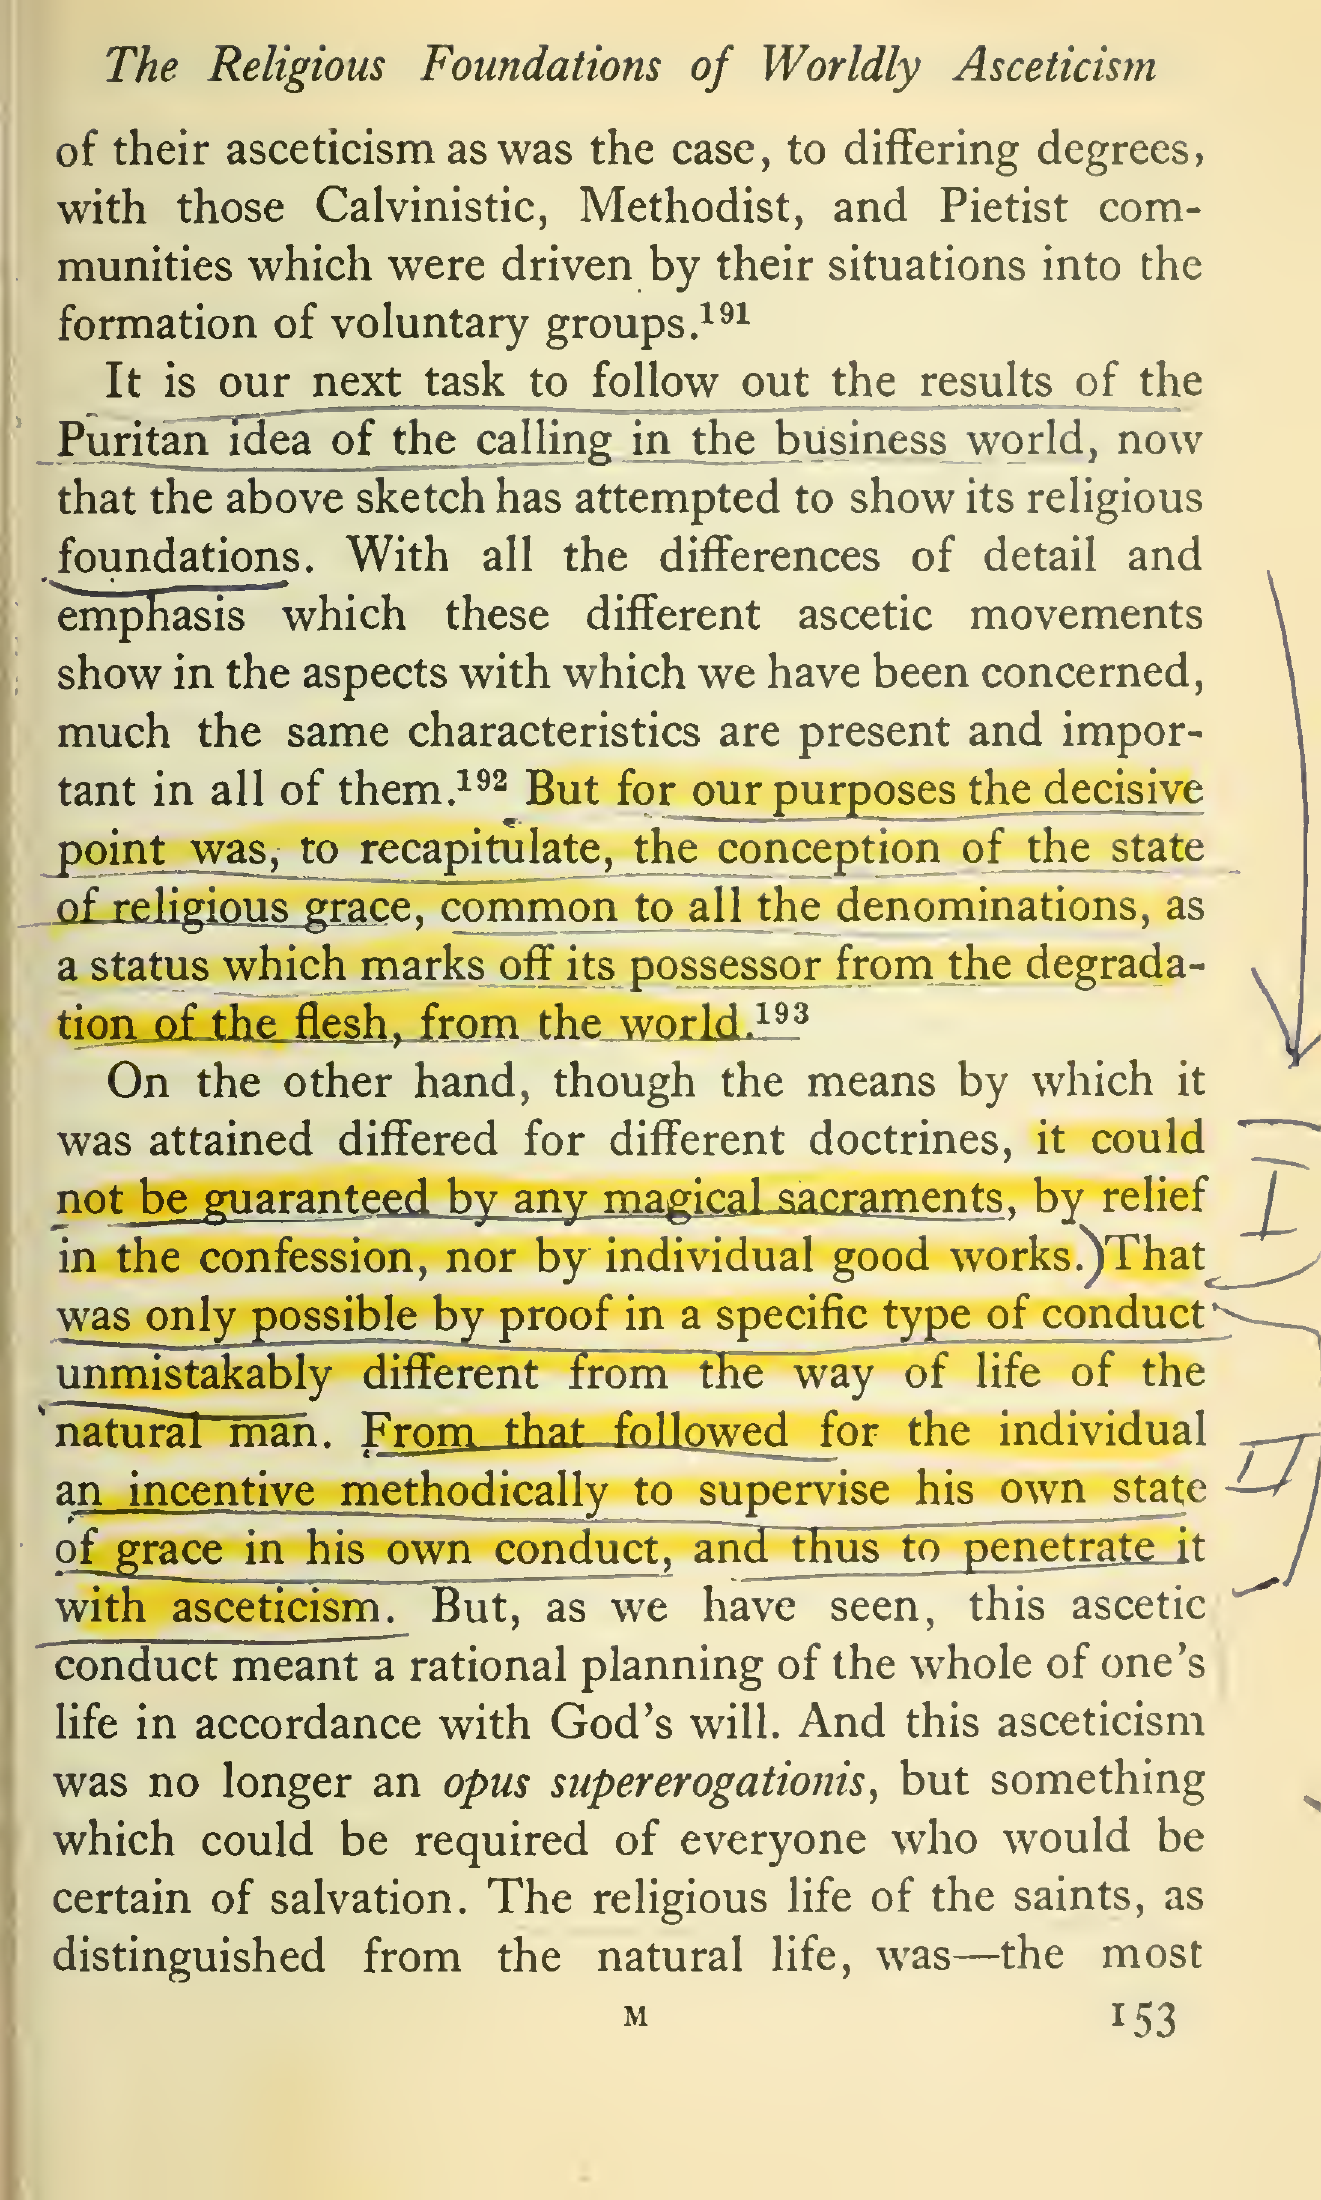 The Religious Foundations of Worldly Asceticism
of their asceticism as was the case, to differing degrees,
with those Calvinistic, Methodist, and Pietist com-
munities which were driven by their situations into the
formation of voluntary groups.¹⁹¹
It is our next task to follow out the results of the
Puritan idea of the calling in the business world, now
that the above sketch has attempted to show its religious
foundations. With all the differences of detail and
emphasis which these different ascetic movements
show in the aspects with which we have been concerned,
much the same characteristics are present and impor-
tant in all of them.¹⁹² But for our purposes the decisive
point was, to recapitulate, the conception of the state
of religious grace, common to all the denominations, as
a status which marks off its possessor from the degrada-
tion of the flesh, from the world.¹⁹³
On the other hand, though the means by which it
was attained differed for different doctrines, it could
not be guaranteed by any magical sacraments, by relief
I
in the confession, nor by individual good works.) That
was only possible by proof in a specific type of conduct
unmistakably different from the way of life of the
natural man. From that followed for the individual
an incentive methodically to supervise his own state
II
of grace in his own conduct, and thus to penetrate it
with asceticism. But, as we have seen, this ascetic
conduct meant a rational planning of the whole of one's
life in accordance with God's will. And this asceticism
was no longer an opus supererogationis, but something
which could be required of everyone who would be
certain of salvation. The religious life of the saints, as
distinguished from the natural life, was—the most
M
153